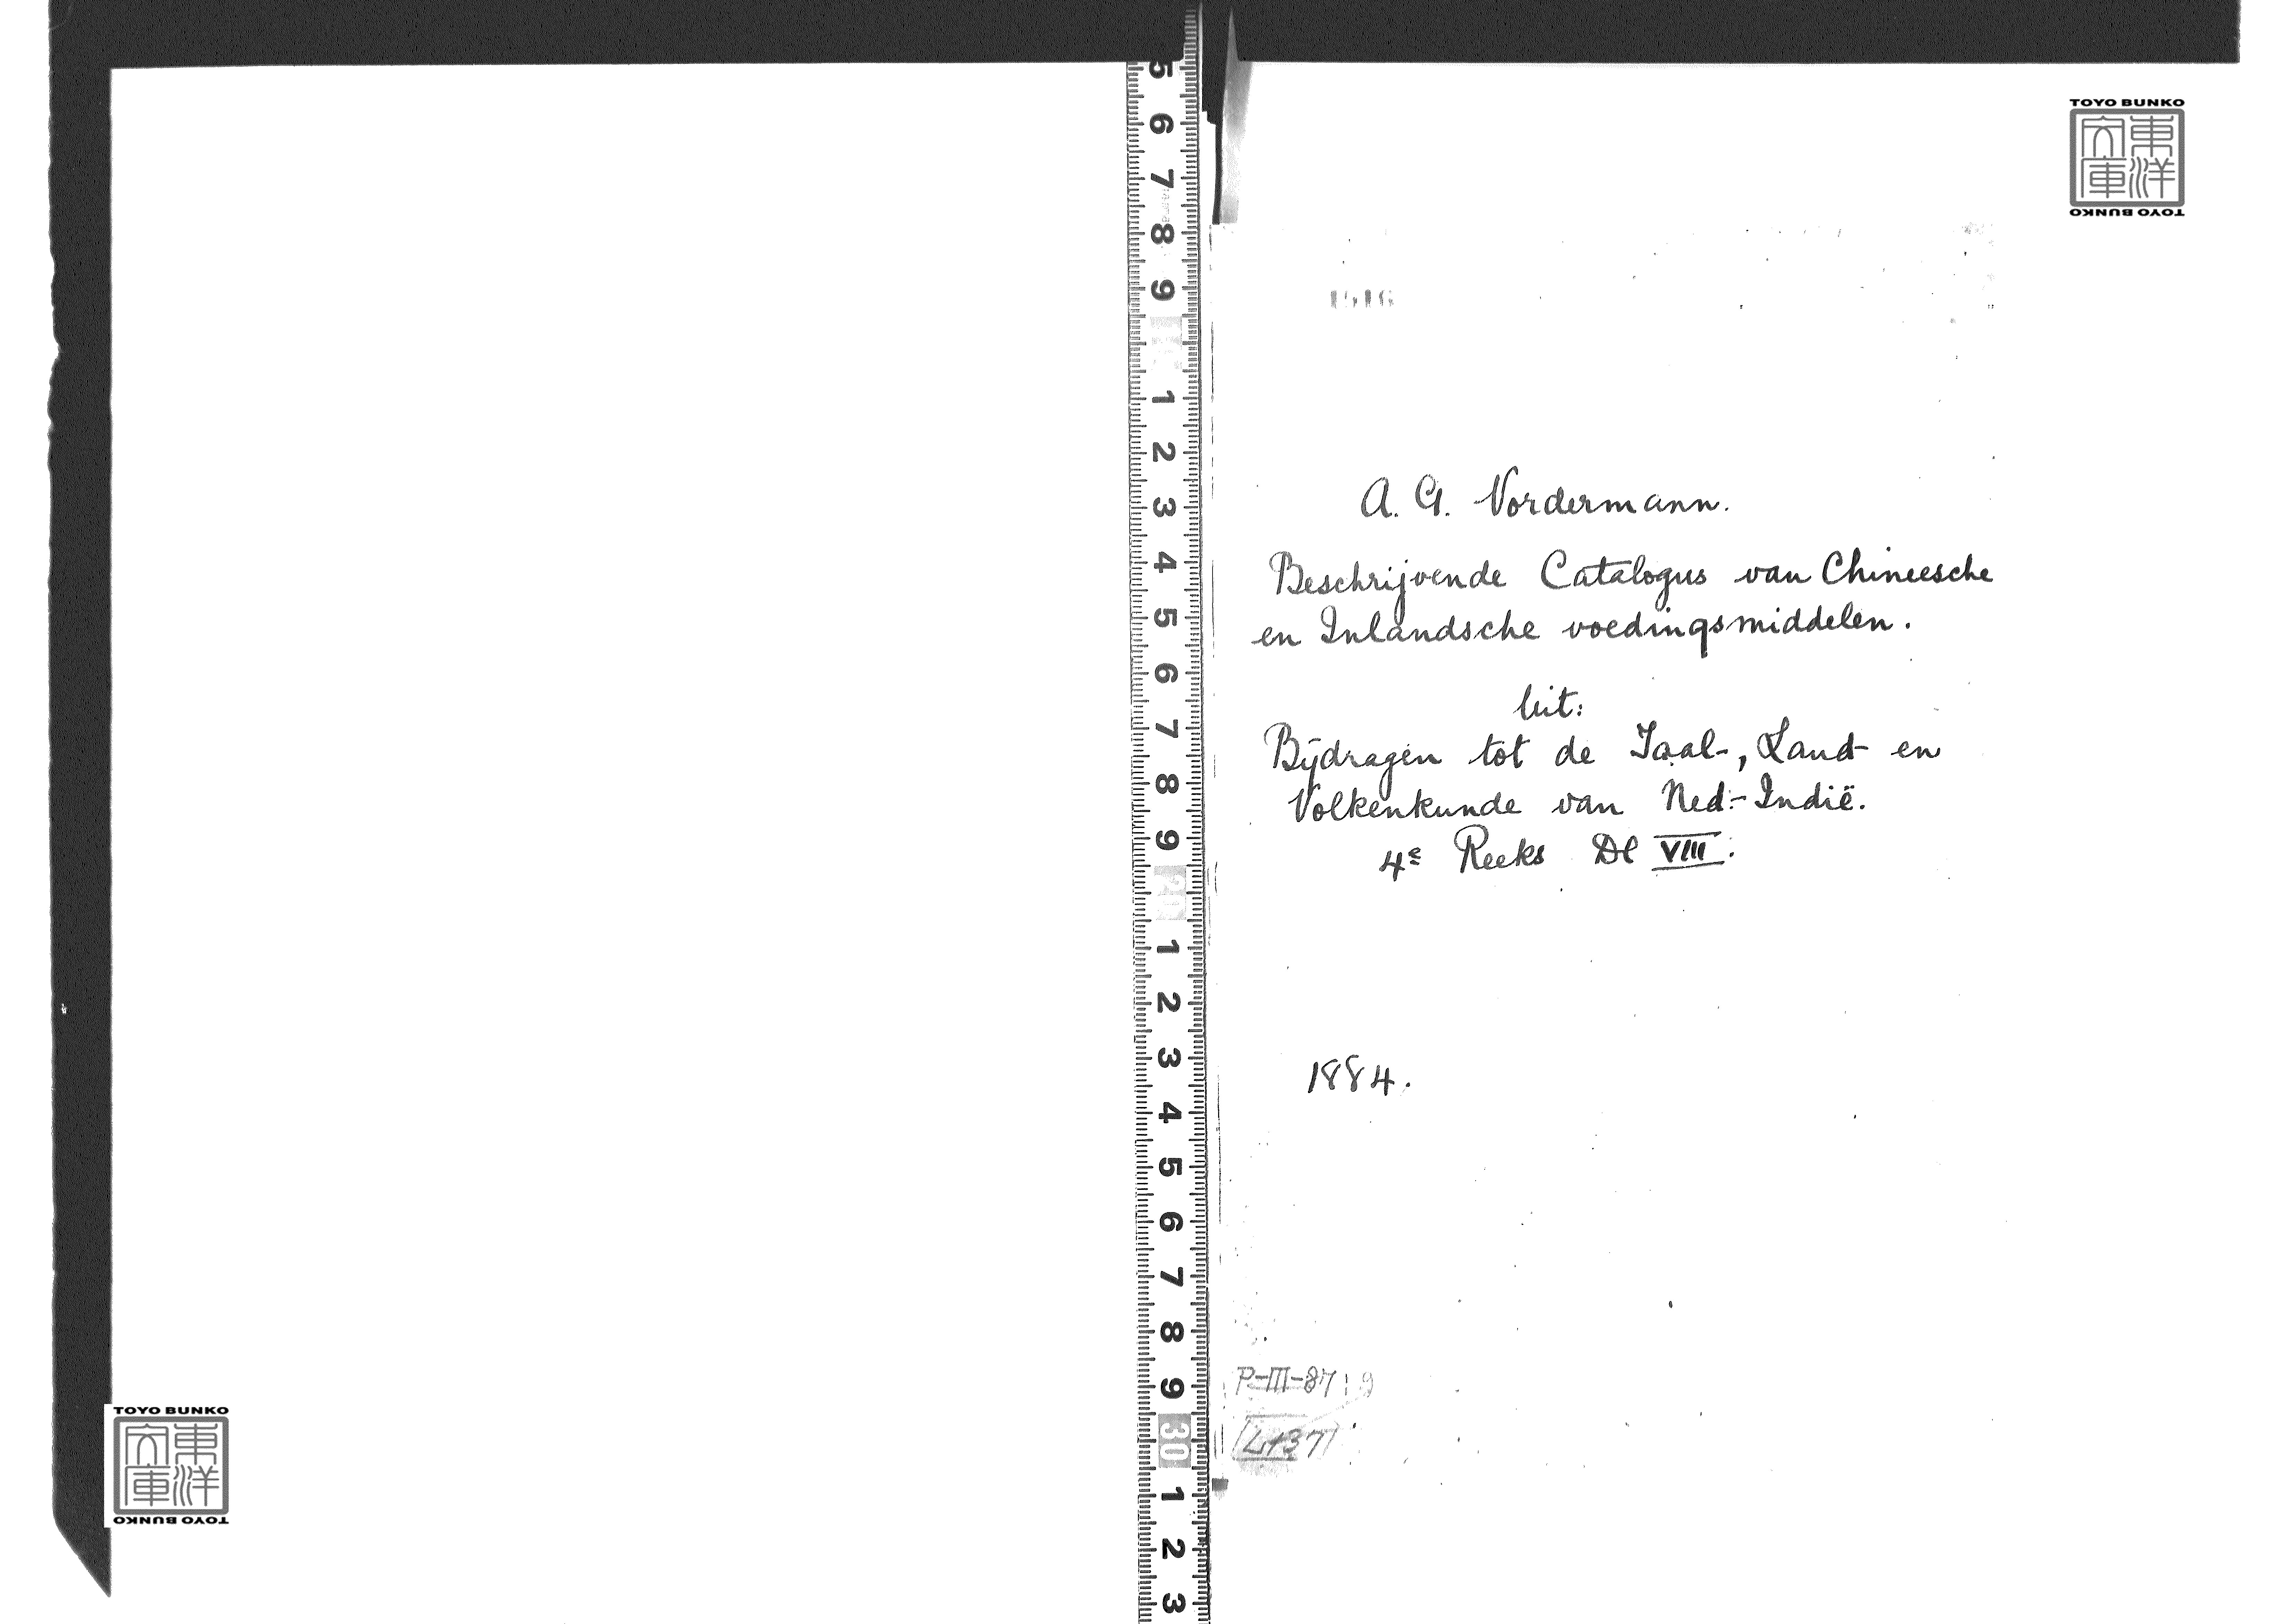 TOYO BUNKO
東洋
文庫
TOYO BUNKO
1516
A. G. Vordermann.
Beschrijvende Catalogus van Chineesche
en Inlandsche voedingsmiddelen.
Uit:
Bijdragen tot de Taal-, Land- en
Volkenkunde van Ned.-Indië.
4e Reeks Dl VIII.
1884.
P-III-87
5
6
7
8
9
1
2
3
4
5
6
7
8
9
20
1
2
3
4
5
6
7
8
9
30
1
2
3
TOYO BUNKO
東洋
文庫
TOYO BUNKO